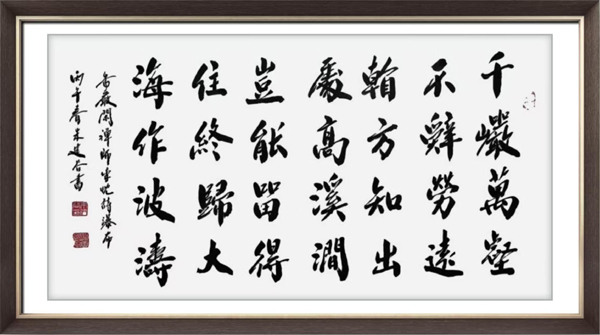 千巖萬壑
不辭勞遠
看方知出
處高溪澗
豈能留得
住終歸大
海作波濤
香嚴閑禪師李忱詩瀑布
丙午春朱建谷書